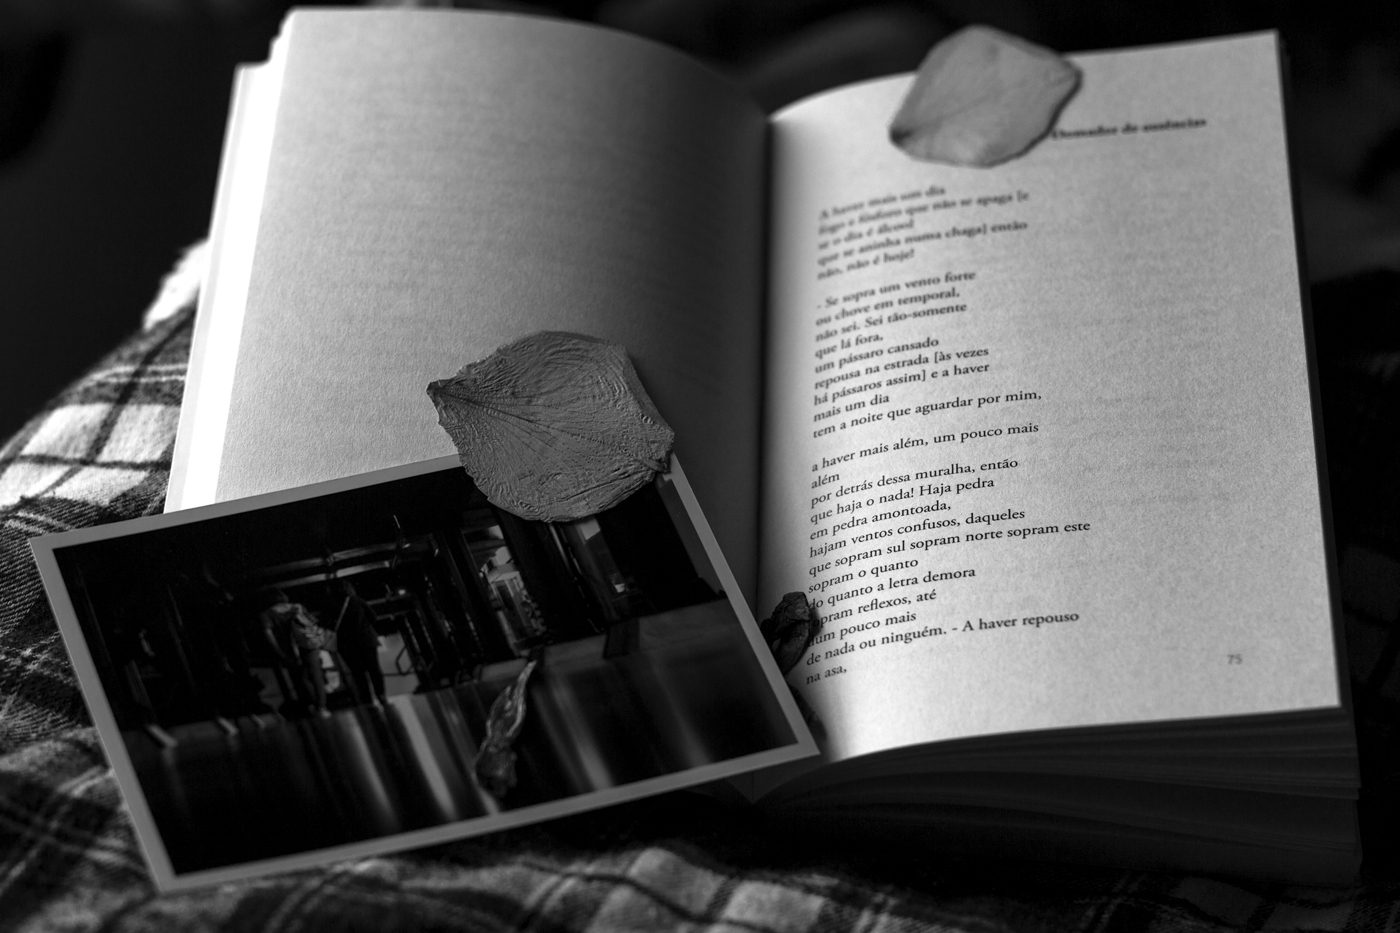 Domador de ausências
A haver mais um dia
fogo e fósforo que não se apaga [e
se o dia é álcool
que se aninha numa chaga] então
não, não é hoje!
- Se sopra um vento forte
ou chove em temporal,
não sei. Sei tão-somente
que lá fora,
um pássaro cansado
repousa na estrada [às vezes
há pássaros assim] e a haver
mais um dia
tem a noite que aguardar por mim,
a haver mais além, um pouco mais
além
por detrás dessa muralha, então
que haja o nada! Haja pedra
em pedra amontoada,
hajam ventos confusos, daqueles
que sopram sul sopram norte sopram este
sopram o quanto
do quanto a letra demora
opram reflexos, até
num pouco mais
de nada ou ninguém. - A haver repouso
na asa,
75